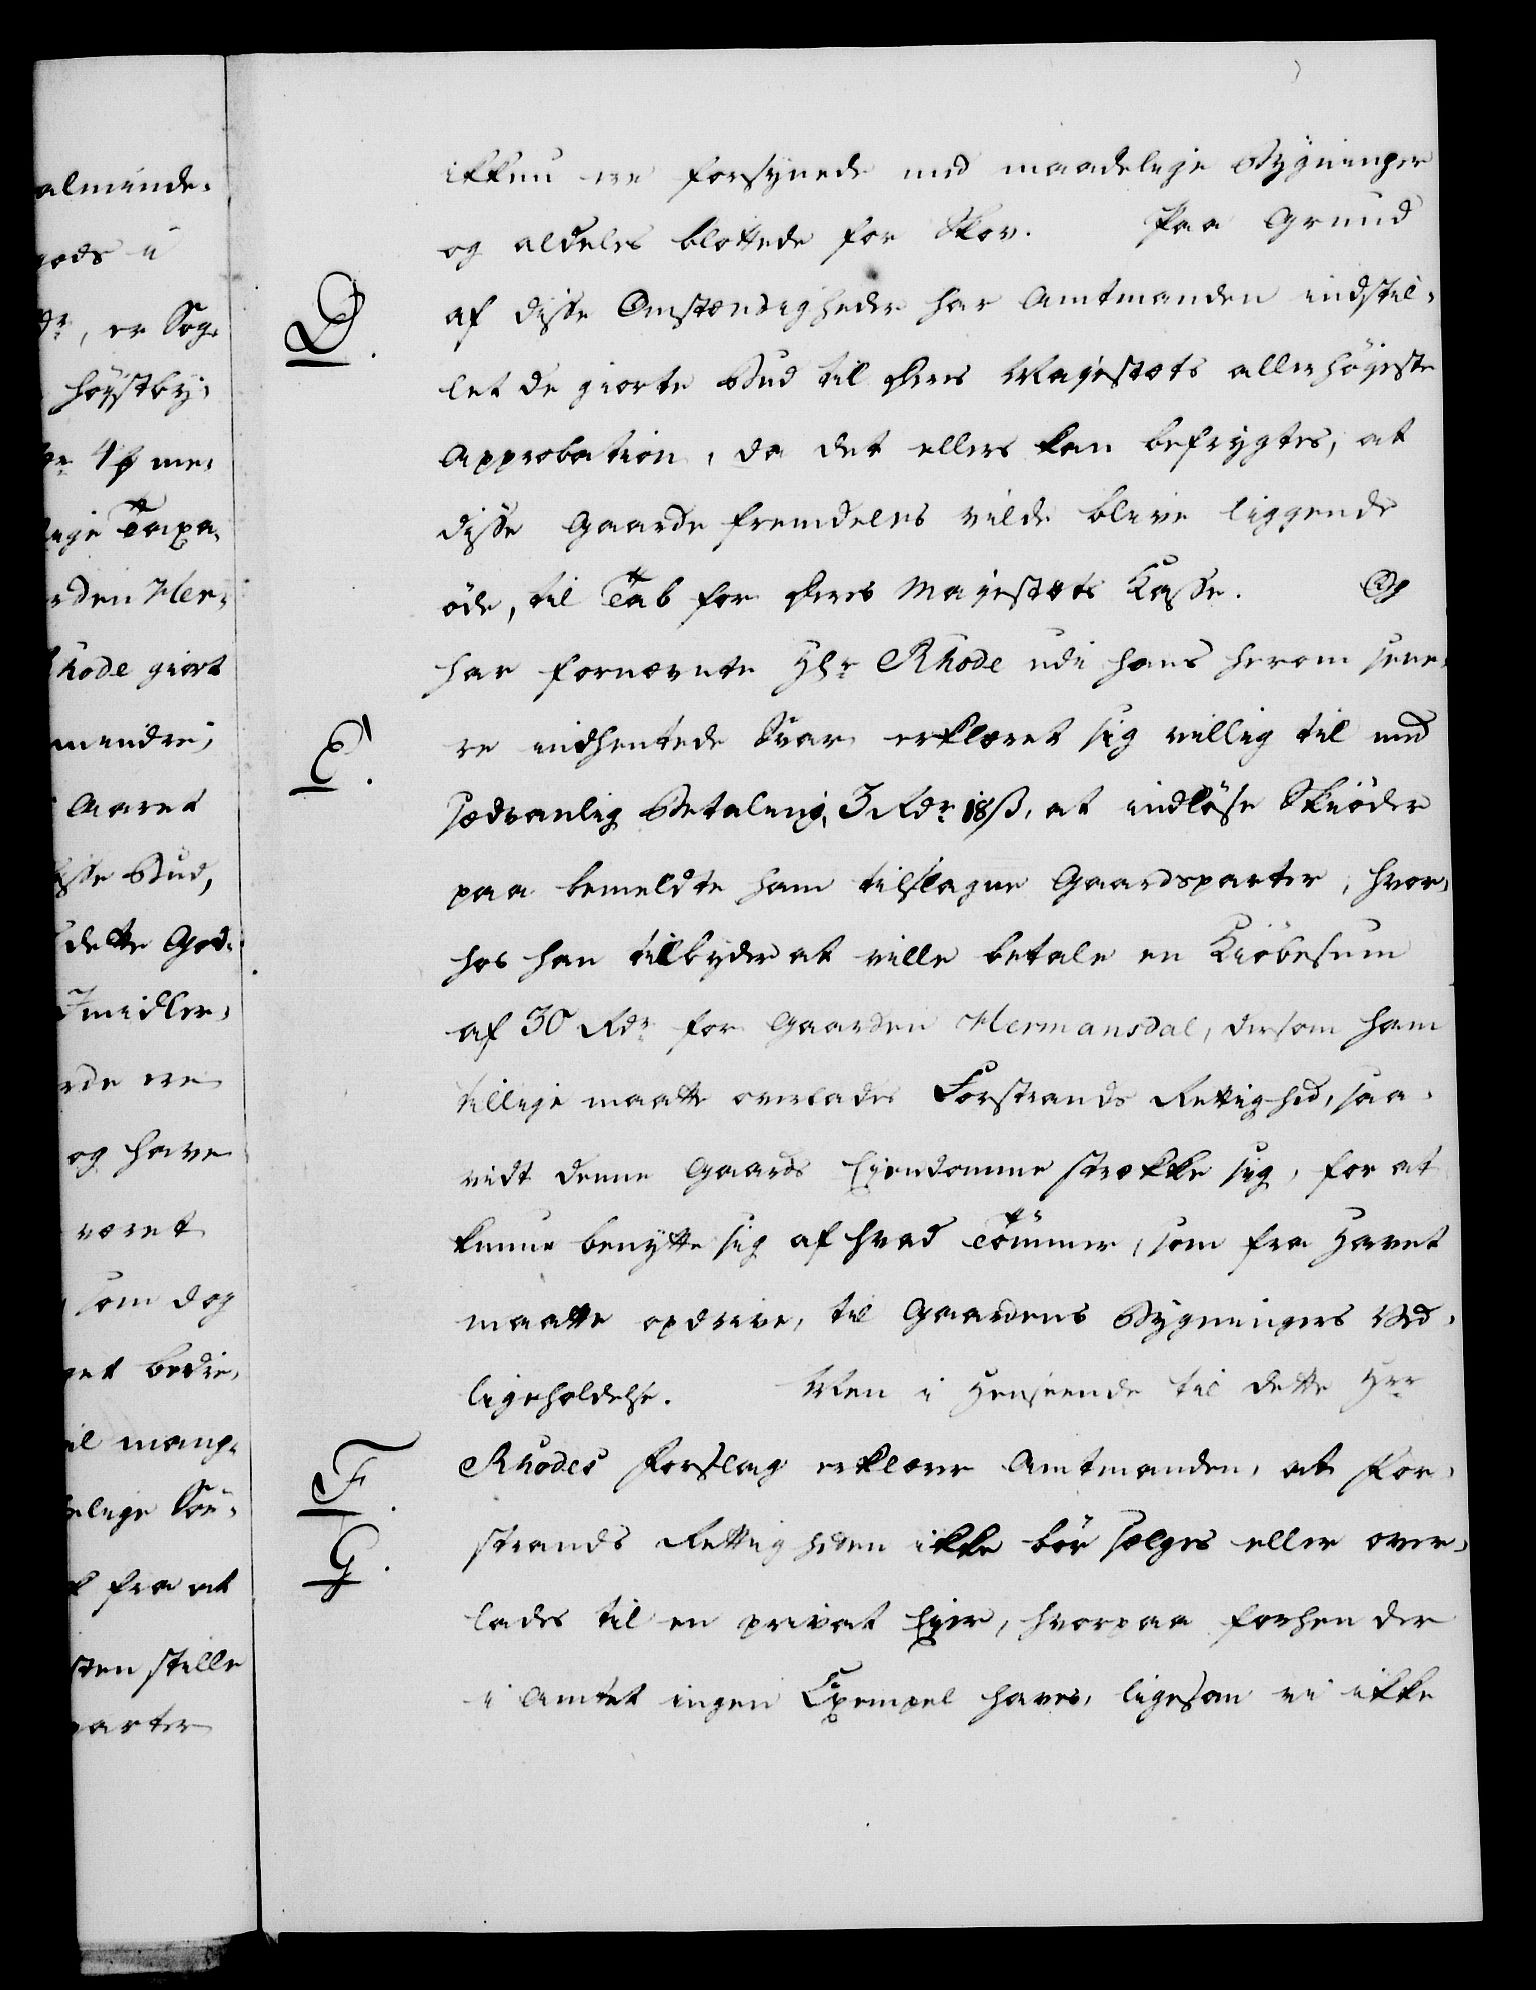 alminde-
gods i
dr, er Sog-
höystby-
4 ß me-
lige Taxa-
rden Her-
Rhode giort
mindre,
Aaret
disse Bud,
dette God-
Imidler-
rde ere
og have
været
som dog
get bedre,
il mang-
elige Søe-
fra at
sten stille
parter
ikkun ere forsynede med maadelige Bygninger
og aldeles blottede for Skov. Paa Grund
D. af disse Omstændigheder har Amtmanden indstil-
let de giorte Bud til Deres Majestæts allerhöyeste
Approbation, da det ellers kan befrygtes, at
disse Gaarde fremdeles vilde blive liggende
öde, til Tab for Deres Majestæts Kasse. Og
har fornævnte Hr Rhode udi hans herom sene-
E. re indhentede Svar erklæret sig villig til med
sædvanlig Betaling, 3 Rdr 18 ß, at indlöse Skiöder
paa bemeldte ham tilslagne Gaardsparter, hvor-
hos han tilbyder at ville betale en Kiöbesum
af 30 Rdr for Gaarden Hermansdal, dersom ham
tillige maatte overlades Forstrands Rettighed, saa-
vidt denne Gaards Eiendomme strække sig, for at
kunne benytte sig af hvad Tömmer, som fra Havet
maatte opdrive, til Gaardens Bygningers Ved-
ligeholdelse. Men i Henseende til dette Hrr
F. Rhodes Forslag erklærer Amtmanden, at For-
G. strands Rettigheden ikke bör sælges eller over-
lades til en privat Eier, hvorpaa forhen der
i Amtet ingen Exempel haves, ligesom vi ikke